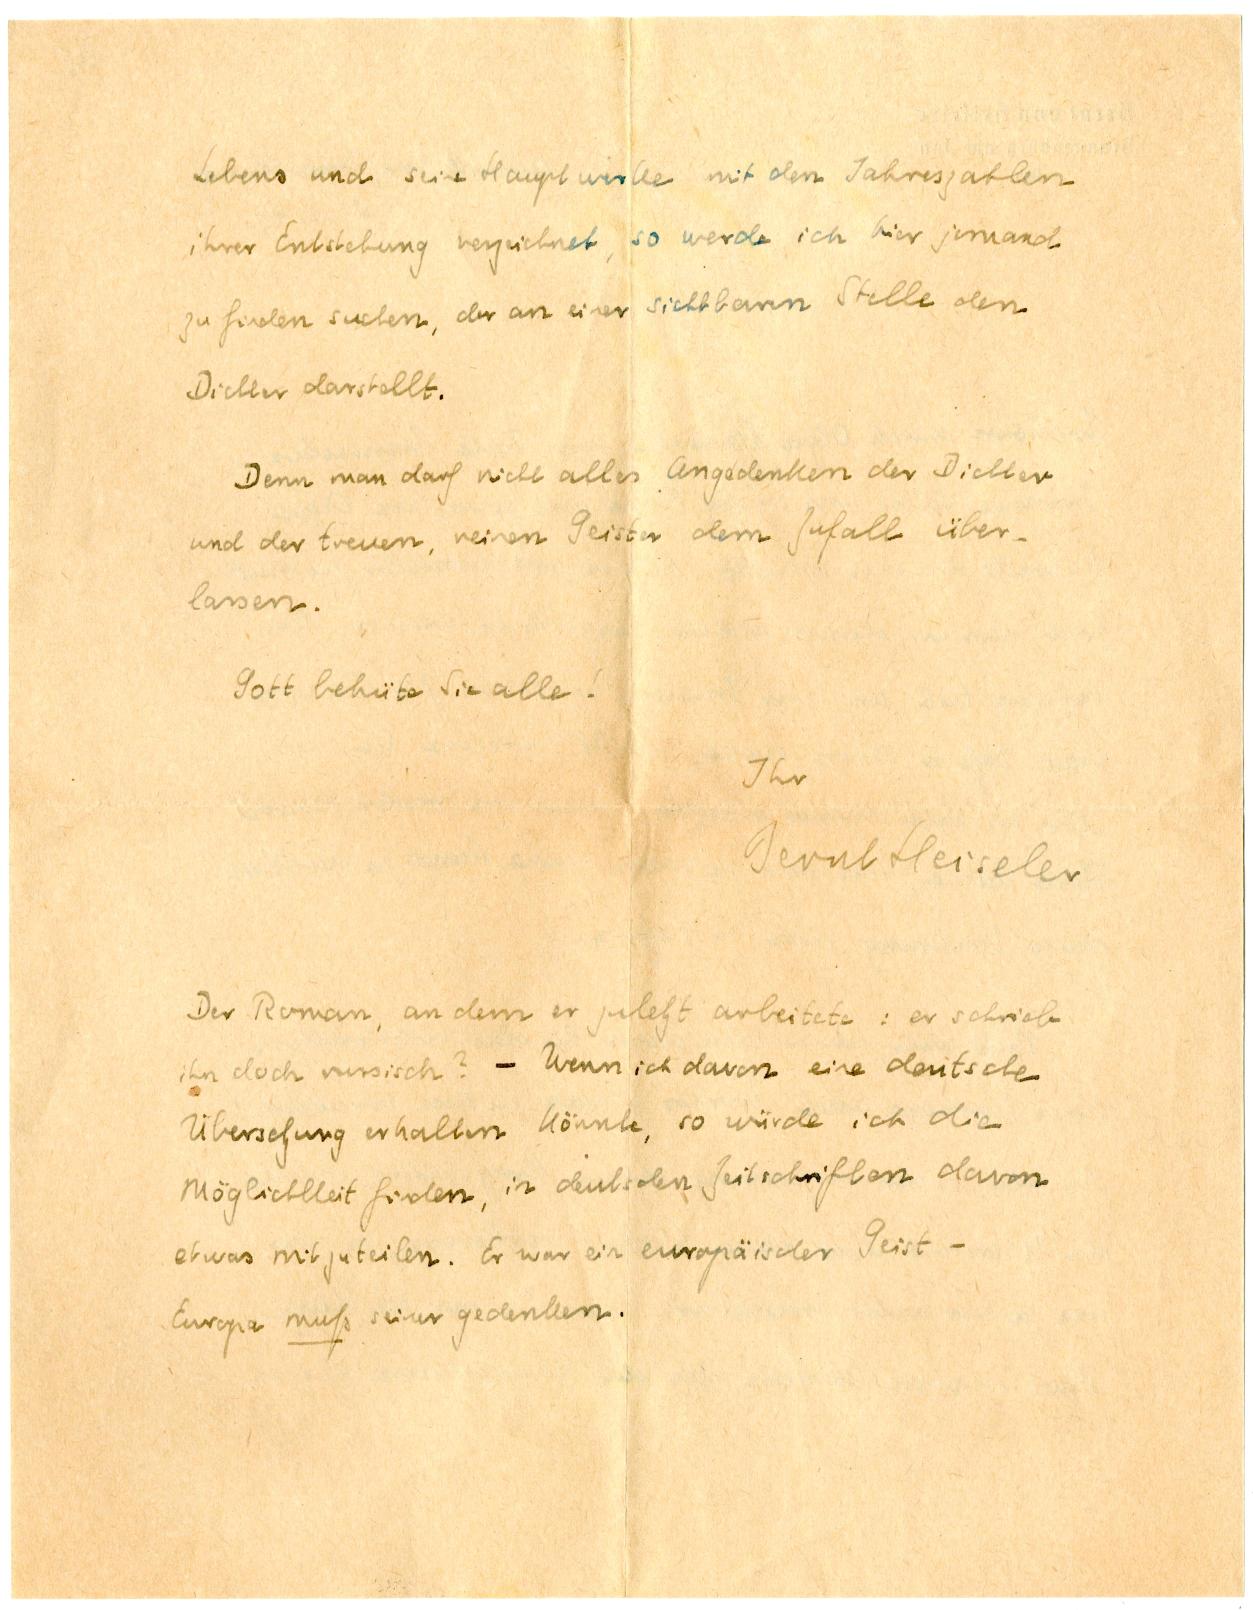 Lebens und seine Hauptwerke mit den Jahreszahlen
ihrer Entstehung verzeichnet, so werde ich hier jemand
zu finden suchen, der an einer sichtbaren Stelle den
Dichter darstellt.
Denn man darf nicht alles Angedenken der Dichter
und der treuen, reinen Geister dem Zufall über-
lassen.
Gott behüte Sie alle!
Ihr
Bernt Heiseler
Der Roman, an dem er zuletzt arbeitete: er schrieb
ihn doch russisch? – Wenn ich davon eine deutsche
Übersetzung erhalten könnte, so würde ich die
Möglichkeit finden, in deutschen Zeitschriften davon
etwas mitzuteilen. Er war ein europäischer Geist –
Europa muß seiner gedenken.